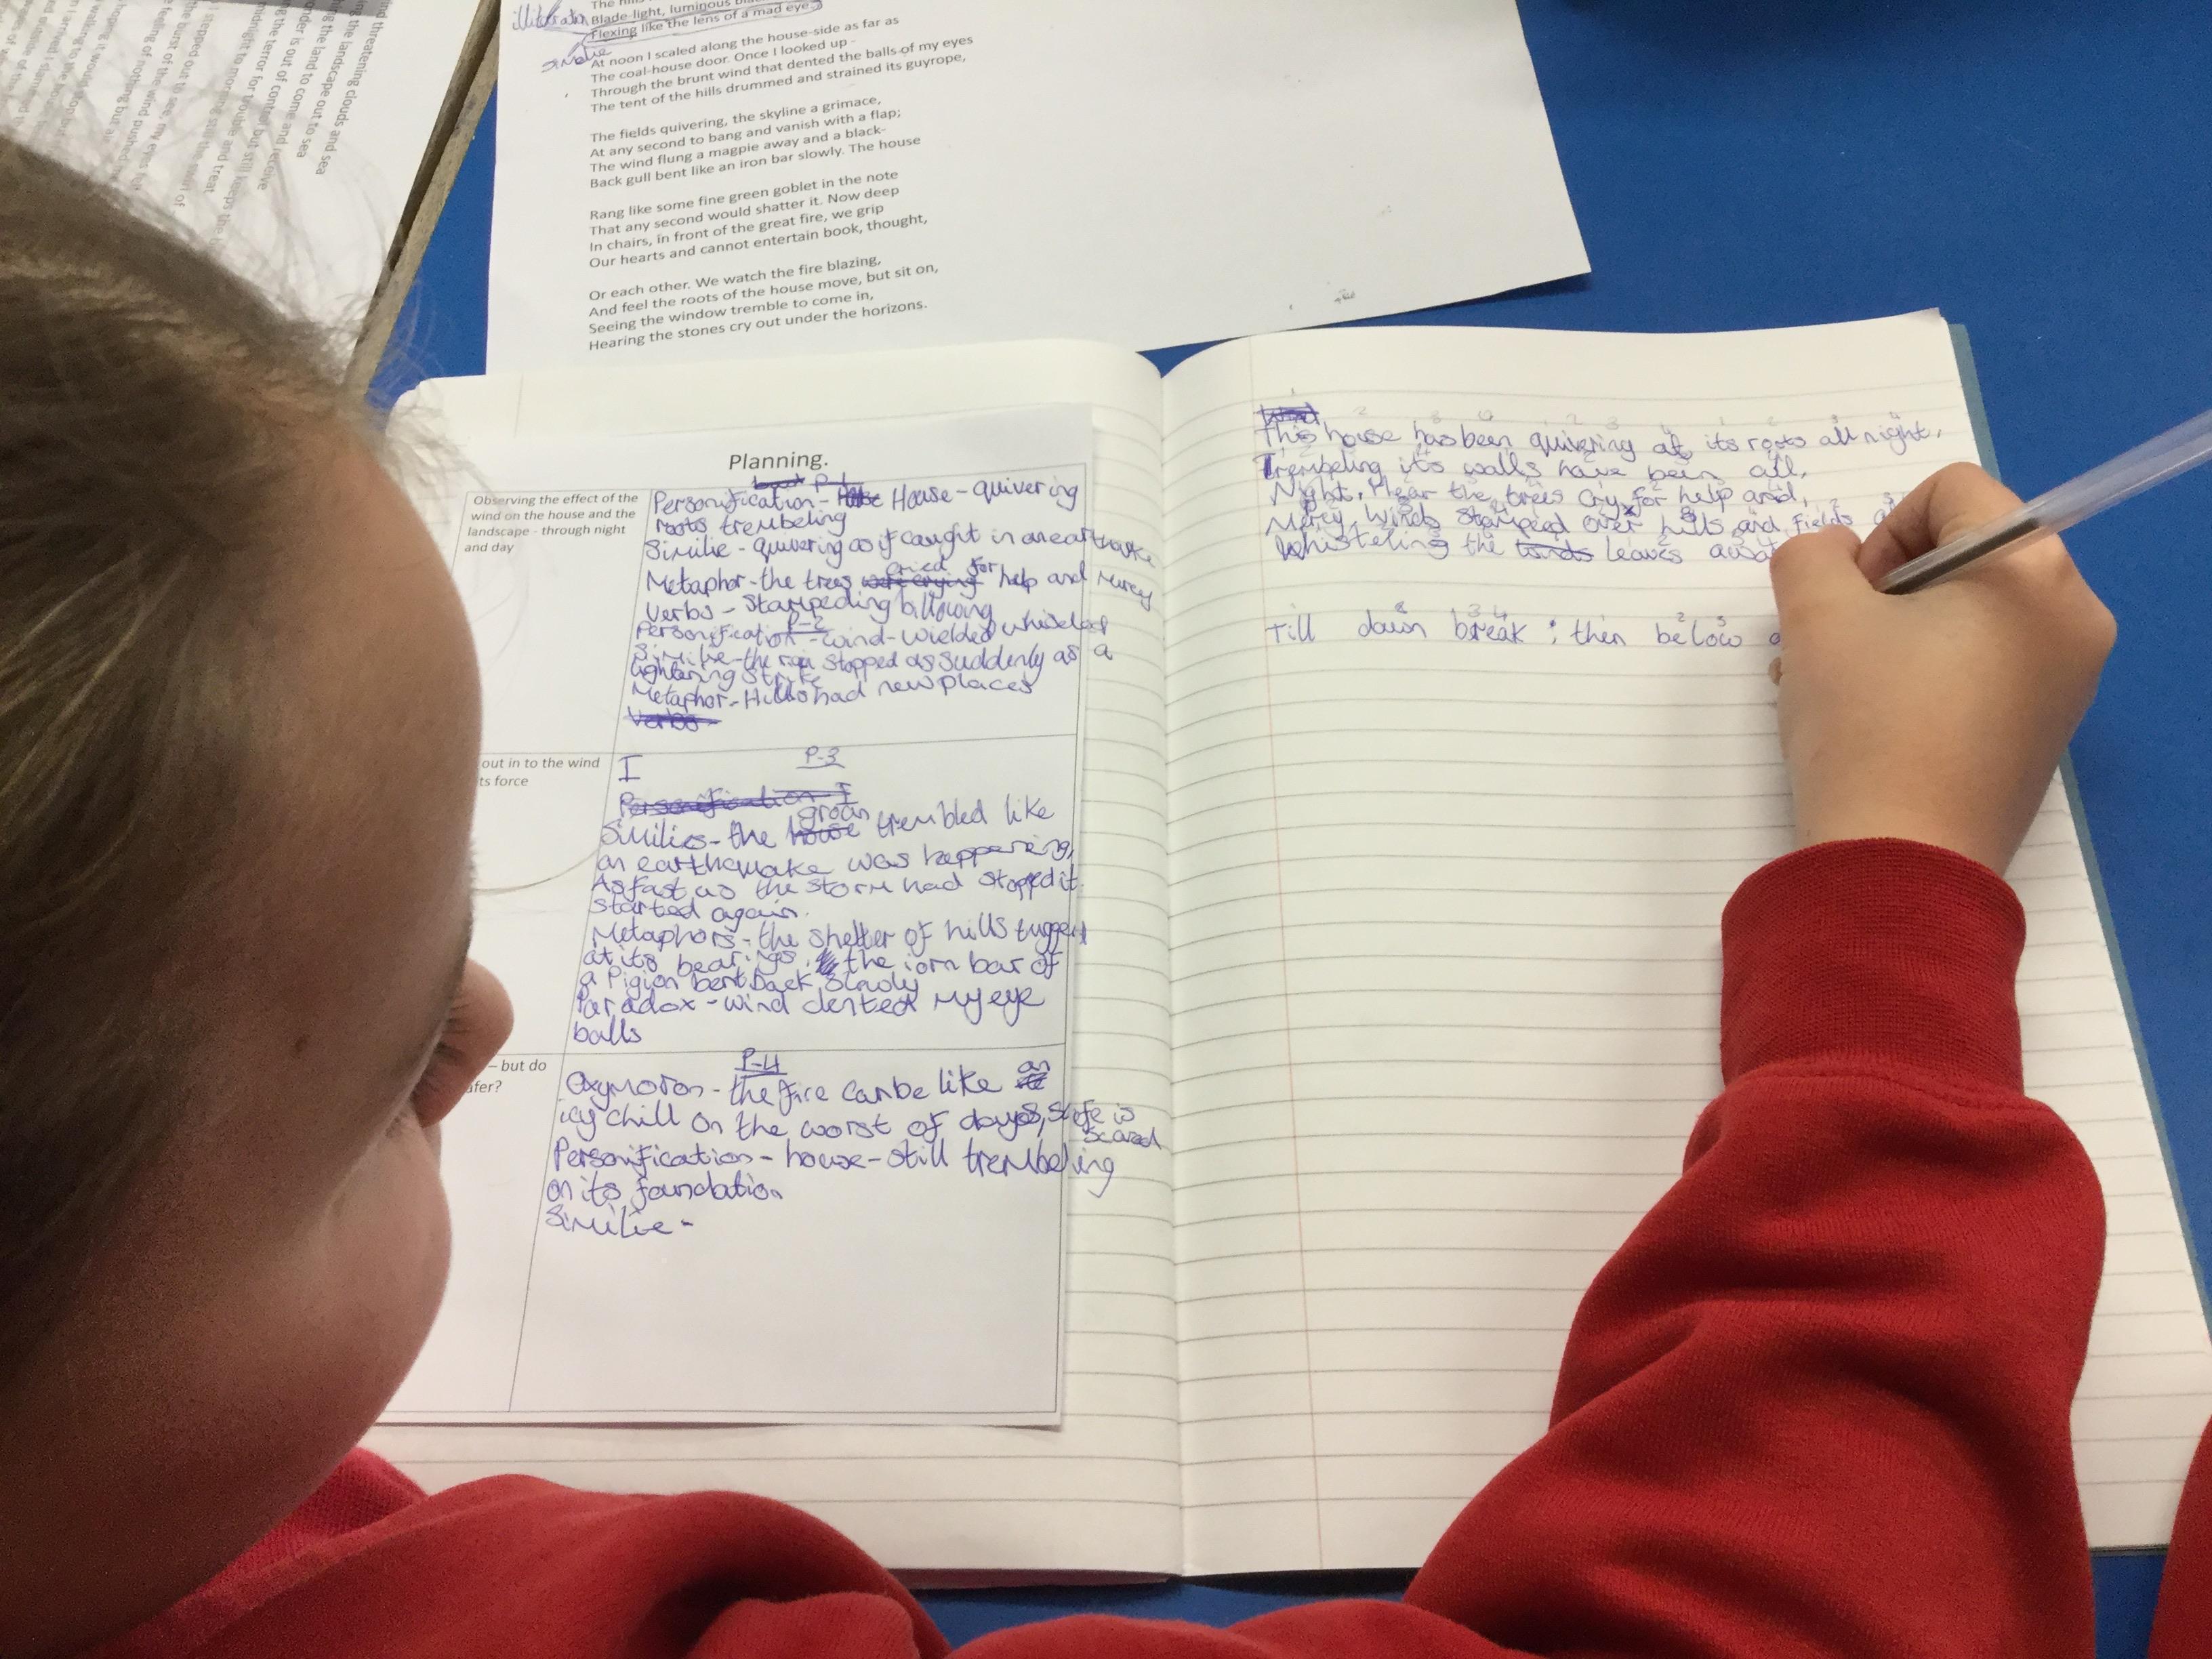 illiteration
Blade-light, luminous
Flexing like the lens of a mad eye
Similie
At noon I scaled along the house-side as far as
The coal-house door. Once I looked up -
Through the brunt wind that dented the balls of my eyes
The tent of the hills drummed and strained its guyrope,
The fields quivering, the skyline a grimace,
At any second to bang and vanish with a flap;
The wind flung a magpie away and a black-
Back gull bent like an iron bar slowly. The house
Rang like some fine green goblet in the note
That any second would shatter it. Now deep
In chairs, in front of the great fire, we grip
Our hearts and cannot entertain book, thought,
Or each other. We watch the fire blazing,
And feel the roots of the house move, but sit on,
Seeing the window tremble to come in,
Hearing the stones cry out under the horizons.
threatening clouds and sea
the landscape out to sea
the land to come and receive
is out of control but still keeps the
the terror for trouble and treat
midnight to morning still the swirl of
I stepped out to see my eyes
the burst of the wind pushed me
feeling of nothing but
Planning.
Observing the effect of the
wind on the house and the
landscape - through night
and day
P-1
Personification - House - quivering
roots trembeling
Similie - quivering as if caught in an earthquake
Metaphor - the trees cried for help and mercy
Verbs - Stampeding billowing
P-2
Personification - wind - wielded whisteled
Similie - the rain stopped as suddenly as a
lightening strike
Metaphor - Hills had new places
Verbs -
out in to the wind
ts force
I P-3
Personification I
Similies - the groan trembled like
an earthquake was happening,
As fast as the storm had stopped it
started again.
Metaphors - the shelter of hills tugged
at its bearings. the iorn bar of
a Pigion bent back slowly
Paradox - wind dented my eye
balls
– but do
afer?
P-4
Oxymoron - the fire can be like an
icy chill on the worst of days, safe is
scared
Personification - house - still trembeling
on its foundation
Similie -
Wind
This house has been quivering at its roots all night,
Trembeling its walls have been all,
Night, I hear the trees cry for help and,
Mercy, Winds stamped over hills and fields
Whisteling the leaves
Till dawn break ; then below